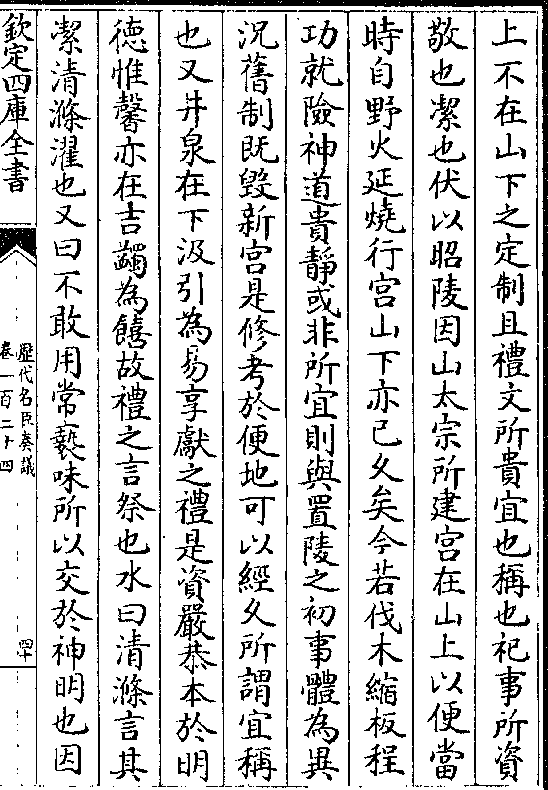 上不在山下之定制且禮文所貴宜也稱也祀事所資
敬也潔也伏以昭陵因山太宗所建宫在山上以便當
時自野火延燒行宫山下亦已久矣今若伐木縮板程
功就險神道貴靜或非所宜則與置陵之初事體為異
况舊制既毀新宫是修考於便地可以經久所謂宜稱
也又井泉在下汲引為易享獻之禮是資嚴恭本於明
徳惟馨亦在吉蠲為饎故禮之言祭也水曰清滌言其
潔清滌濯也又曰不敢用常䙝味所以交於神明也因
欽定四庫全書
歷代名臣奏議
卷一百二十四
四十